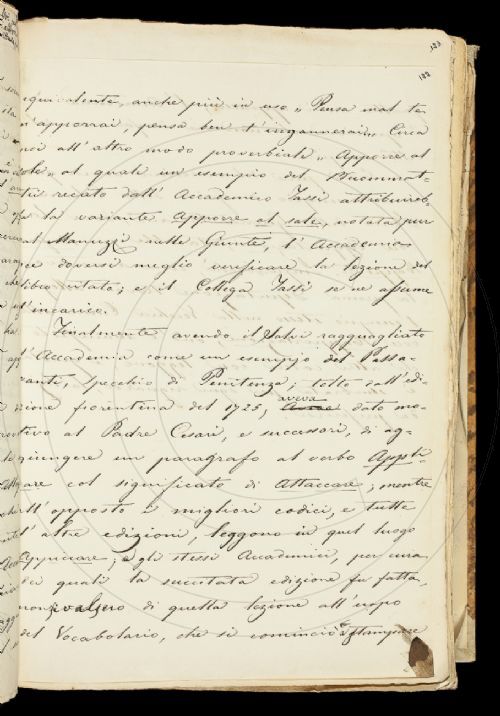 123
122
equivalente, anche più in uso „ Pensa mal te
n'apporrai, pensa ben t'ingannerai„. Circa
poi all'altro modo proverbiale „ Apporre al
sole„ al quale un esempio del Buonarrot-
ti recato dall'Accademico Tassi attribuireb-
be la variante Apporre al sale, notata pur
dal Manuzzi nelle Giunte, l'Accademia
doversi meglio verificare la lezione del
libro citato; e il Collega Tassi se ne assume
l'incarico.
Finalmente avendo il Salvi ragguagliato
l'Accademia come un esempio del Passa-
vanti, Specchio di Penitenza; tolto dall'edi-
zione fiorentina del 1725, aveva dato mo-
tivo al Padre Cesari, e successori, di ag-
giungere un paragrafo al verbo Appli-
care col significato di Attaccare; mentre
all'opposto i migliori codici, e tutte
l'altre edizioni, leggono in quel luogo
Appiccare; e gli stessi Accademici, per cura
dei quali la succitata edizione fu fatta,
non si valsero di quella lezione all'uopo
del Vocabolario, che si cominciò a stampare